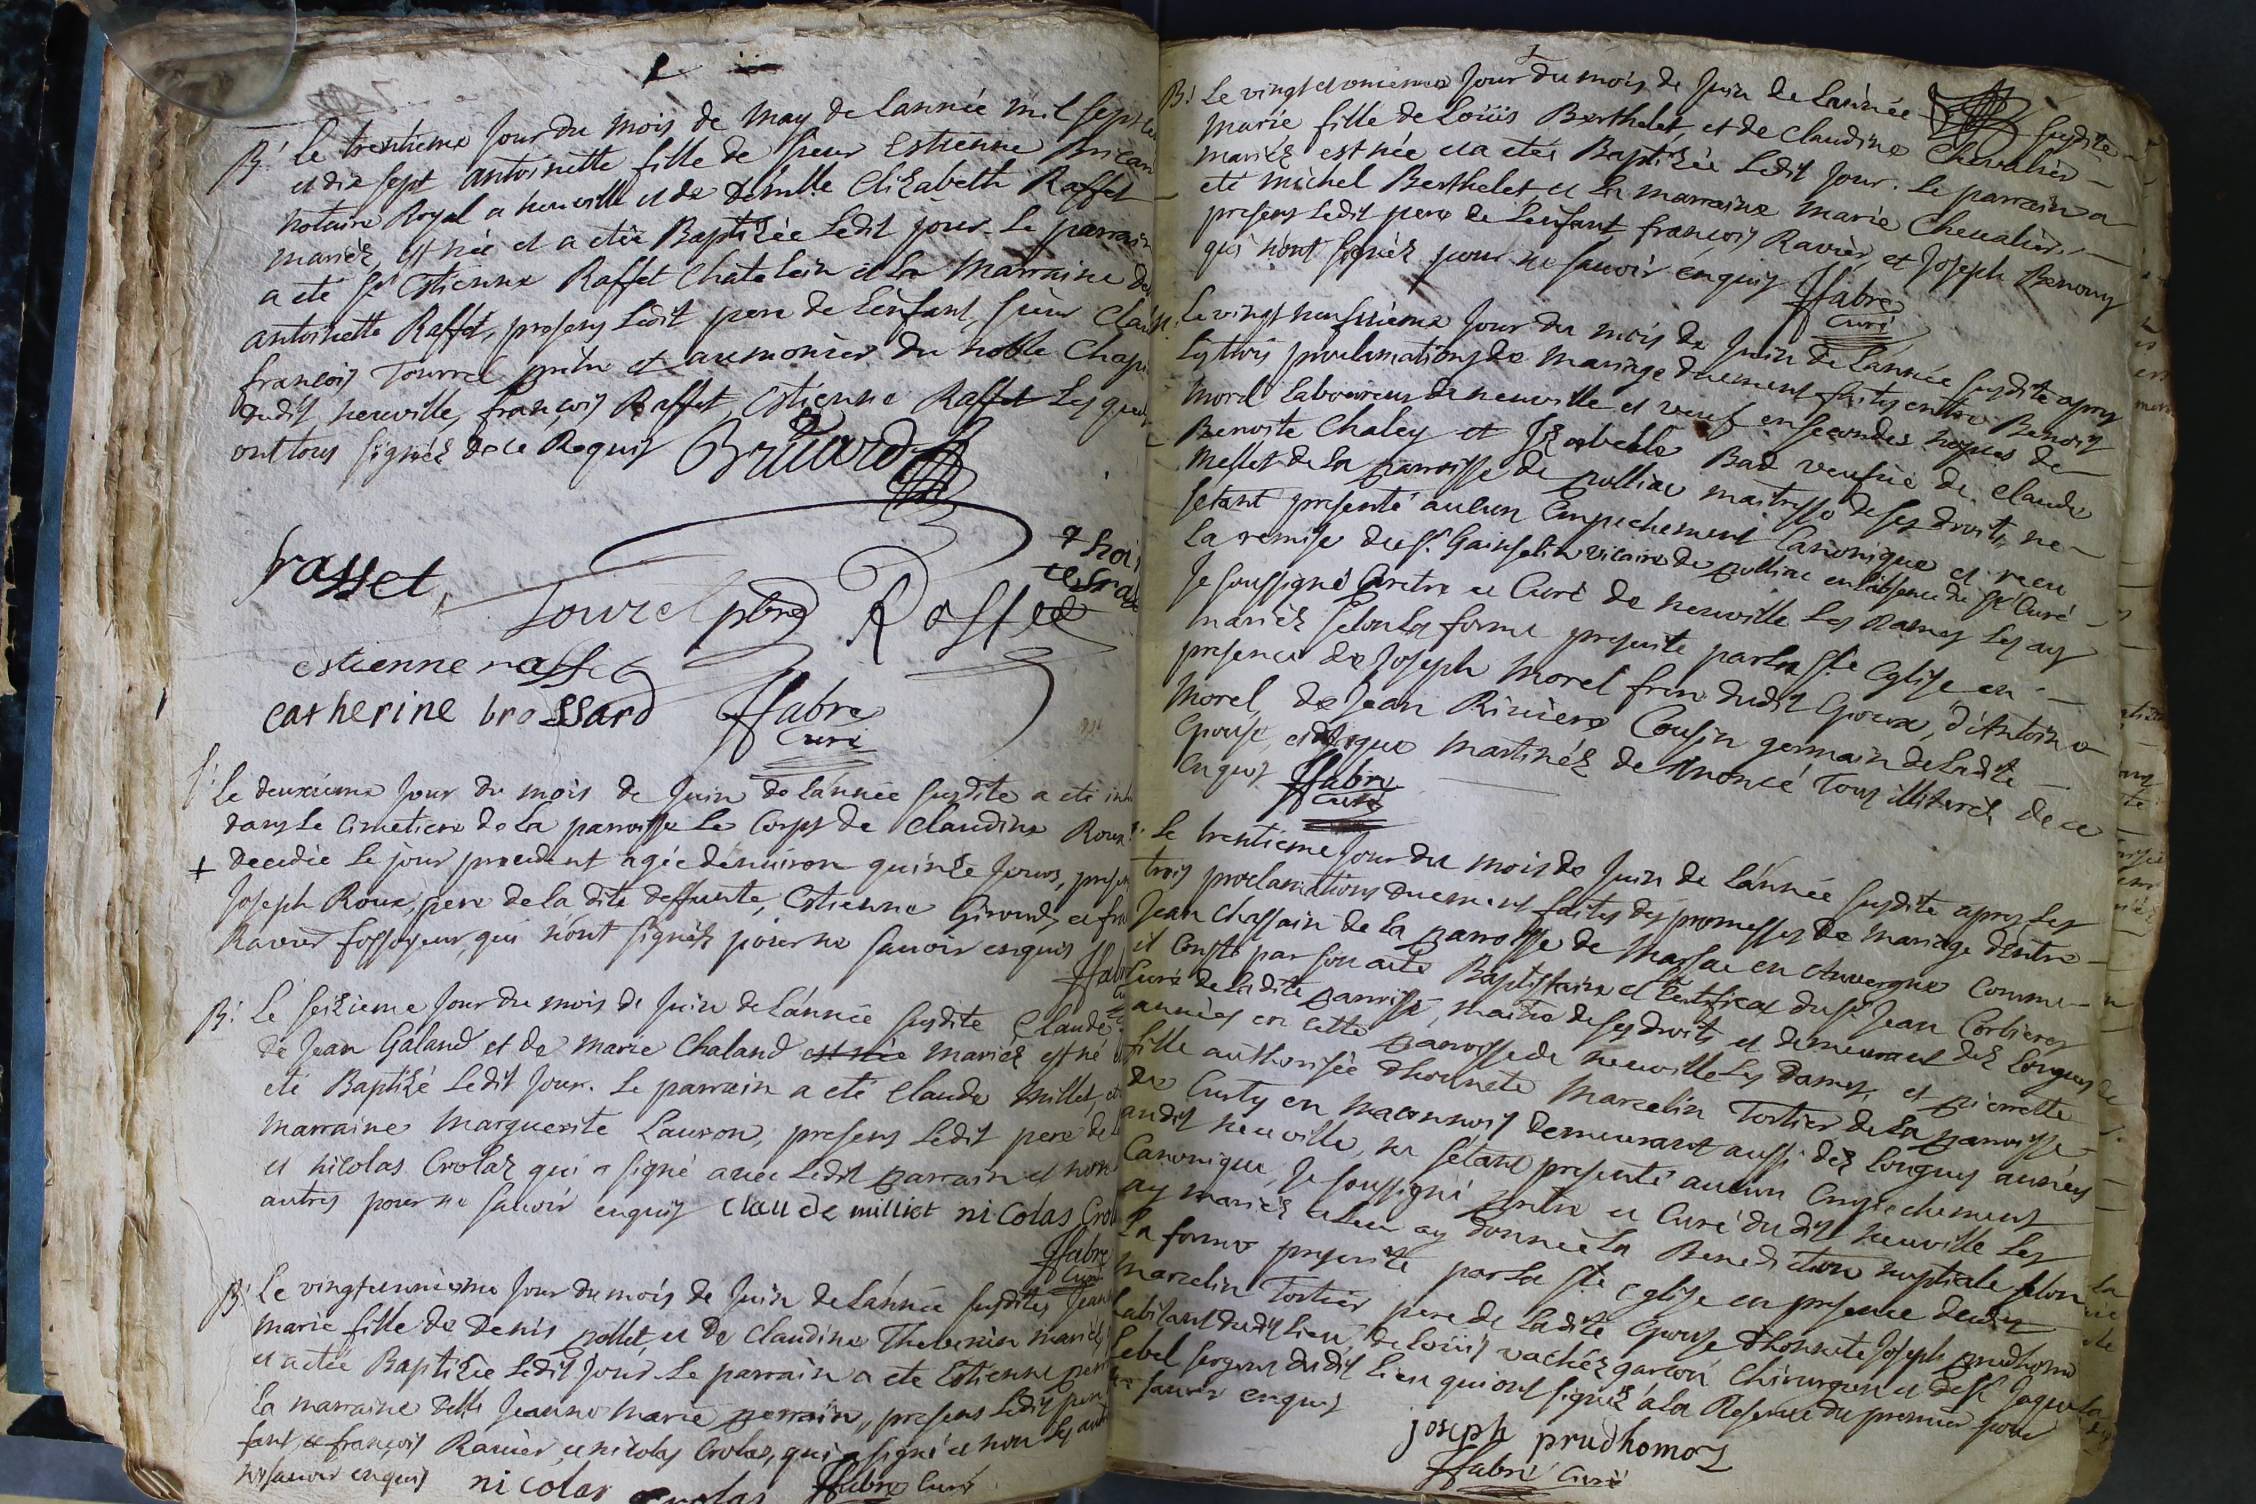 B.t Le trentieme jour du mois de may de lannée mil sept
et dix sept antoinette fille de sieur Estienne
notaire Royal a neuville et de Demlle Elizabeth Raffet
mariéz, est née et a etée Baptizée Ledit jour. Le parrain
a eté Sr Estienne Raffet Chatelain et la Marraine
antoinette Raffet, presens Ledit pere de Lenfant, sieur
françois Tourrel prtre et aumonier du noble
dudit neuville, françois Raffet, Estienne Raffet Lesquels
ont tous signéz de ce Requis
frasset
Tourrel pbre Raffet
estienne raffet
catherine brossard ffabre
Curé
Le deuxieme jour du mois de Juin de lannée susdite a eté
dans Le Cimetiere de La parroisse Le Corps de Claudine Roux
+ decedée Le jour precedent agée denviron quinze jours,
Joseph Roux, pere de la dite deffunte, Estienne Giroud, et
Ravier fossoyeur, qui n'ont signéz pour ne savoir enquis
ffabre
B.t Le seizieme Jour du mois de Juin de lannée susdite Claude
de Jean Galand et de Marie Chaland mariéz est né
eté Baptizé Ledit Jour. Le parrain a eté Claude Millet,
Marraine Marguerite Lauron, presens Ledit pere de
et nicolas Crolaz qui a signé avec Ledit parrain et non
autres pour ne savoir enquis Claude milliet nicolas
ffabre
Curé
B.t Le vingtunnieme Jour du mois de Juin de lannée susdite
marie fille de Denis pollet, et de Claudine Thevenin mariéz
et a etée Baptizée Ledit jour Le parrain a ete Estienne
La marraine delle Jeanne Marie perrain, presens Ledit pere
fant et françois Ravier, et nicolas Crolaz, qui a signé et non
ne savoir enquis nicolas crolas ffabre Curé
B.t Le vingt et onieme Jour du mois de Juin de Lannée susdite
marie fille de Loüis Berthelet et de Claudine Chevalier
mariéz est née et a etée Baptizée Ledit Jour. Le parrain a
eté michel Berthelet, et La marraine Marie Chevalier
presens Ledit pere de Lenfant, françois Ravier, et Joseph
qui n'ont signéz pour ne savoir enquis ffabre
Curé
Le vingt neufsieme Jour du mois de Juin de lannée susdite apres
Les trois proclamations de mariage duement faites entre Benoit
Morel Laboureur de neuville et veuf en secondes nopces de
Benoite Chaley et Izabelle Bad veufue de Claude
Mellet de La parroisse de polliac maitresse de ses droits, ne
setant presenté aucun Empechement Canonique et veu
La remise du Sr vicaire de polliac en labsence du Sr Curé
Je soussigné prtre et Curé de neuville Les Dames Les ay
mariéz selon La forme prescrite par La Ste Eglise en
presence de Joseph Morel frere dudit Epoux, d'Antoine
Morel, de Jean Riviere Cousin germain de Ladite
Epouse, et Martinéz de Tous illiteréz de ce
enquis ffabre
Curé
Le trentieme jour du mois de Juin de lannée susdite apres Les
trois proclamations duement faites des promesses de mariage d'Entre
Jean Chassain de la parroisse de Marsac en Auvergne comme
il Conste par son acte Baptistaire et Certificat du Sr Jean Corbieres
Curé de La dite parroisse, maitre de ses droits et demeurant dez Longues
années en cette parroisse de neuville Les Dames, et pierrette
fille authorisée d'honnete Marcelin Tortier de La parroisse
de Curty en Maconnois demeurant aussi dez Longues années
audit neuville, ne setant presenté aucun Empechement
Canonique, Je soussigné prtre et Curé dudit neuville Les
ay mariéz et Leur ay donnée La Benediction nuptiale selon
La forme prescrite par La Ste Eglise en presence dudit
Marcelin Tortier pere de Ladite Epouse d'honnete Joseph prudhomo
habitant dudit Lieu, de Loüis vachéz garçon Chirurgien et de Sr Jaque
Lebel sergent dudit Lieu qui ont signéz a la Reserve du premier pour
ne savoir enquis
joseph prudhomoz
ffabre Curé